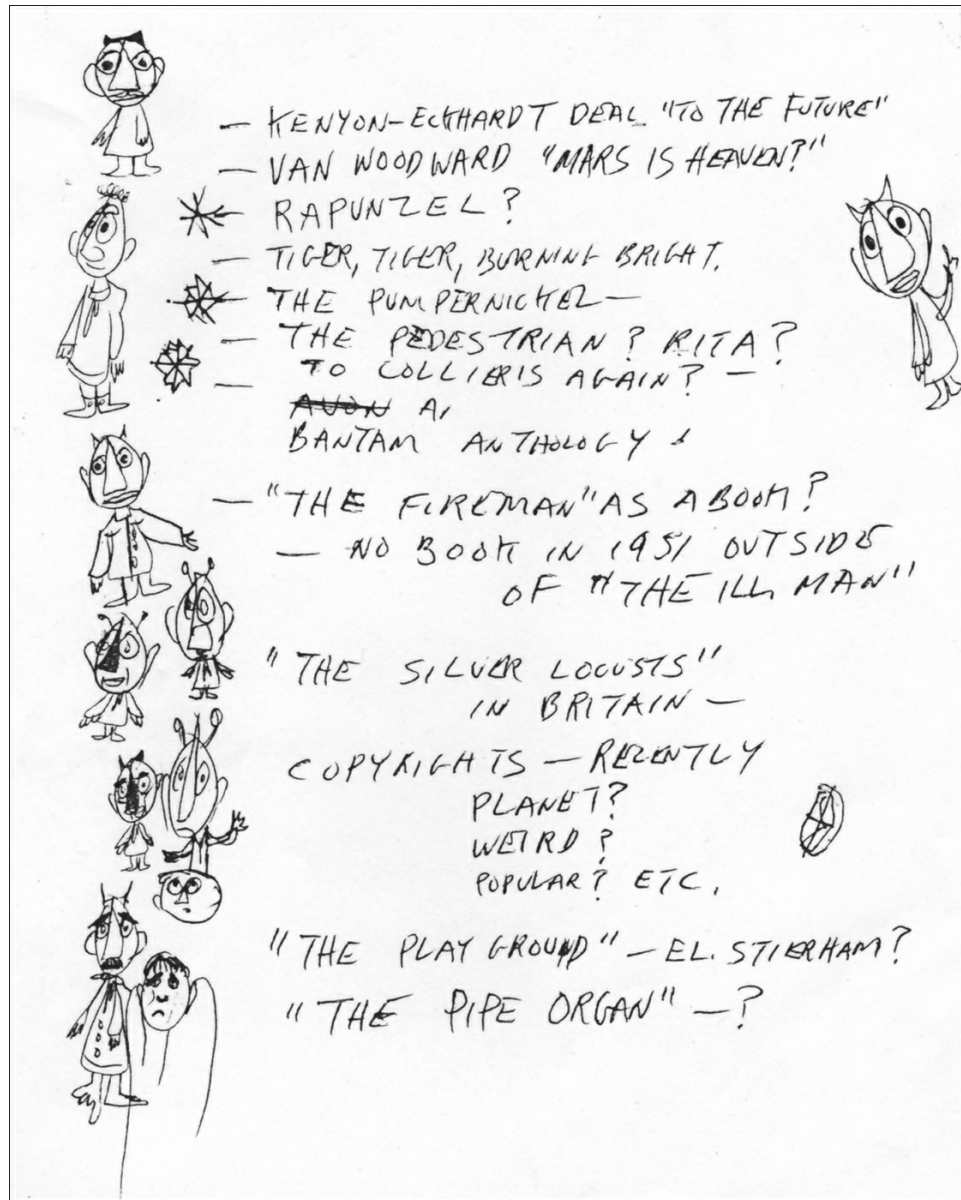 — KENYON-ECKHARDT DEAL "TO THE FUTURE"
— VAN WOODWARD "MARS IS HEAVEN?"
RAPUNZEL?
— TIGER, TIGER, BURNING BRIGHT.
— THE PUMPERNICKEL —
— THE PEDESTRIAN? RITA?
— TO COLLIERIS AGAIN? —
AVON A,
BANTAM ANTHOLOGY
— "THE FIREMAN" AS A BOOK?
— NO BOOK IN 1951 OUTSIDE
OF "THE ILL MAN"
"THE SILVER LOCUSTS"
IN BRITAIN —
COPYRIGHTS — RECENTLY
PLANET?
WEIRD?
POPULAR? ETC.
"THE PLAYGROUND" — EL. STIERHAM?
"THE PIPE ORGAN" —?